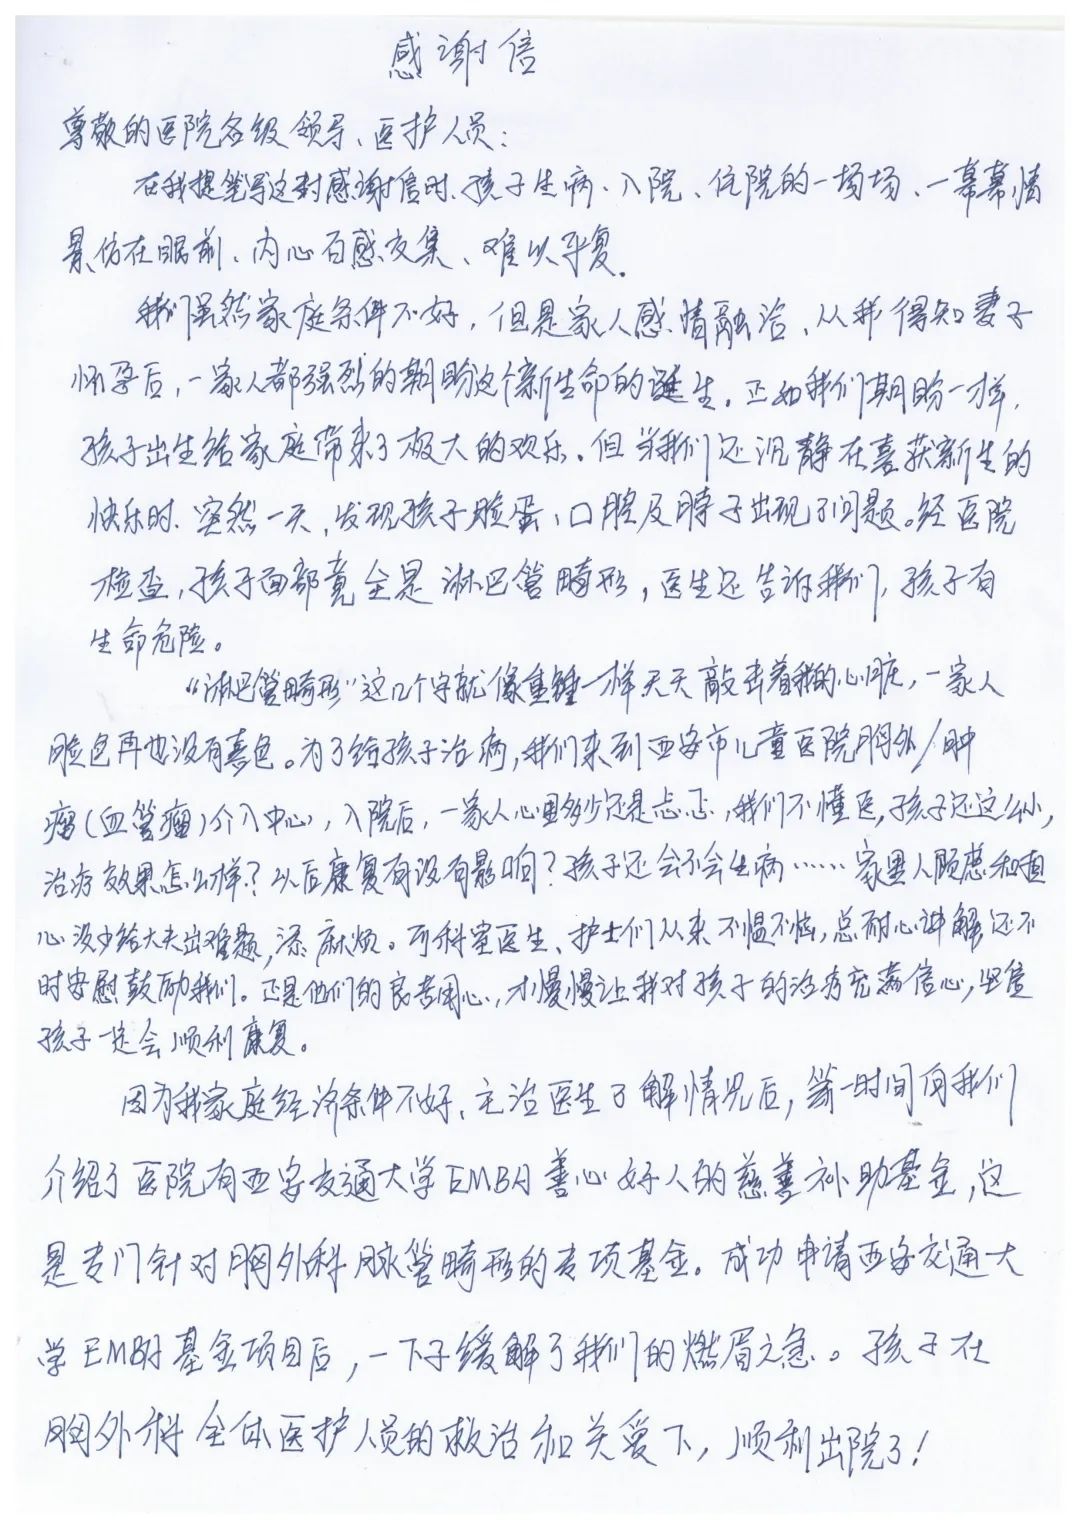 感谢信
尊敬的医院各级领导、医护人员：
在我提笔写这封感谢信时、孩子生病、入院、住院的一场场、一幕幕情
景仿在眼前、内心百感交集、难以平复。
我们虽然家庭条件不好，但是家人感情融洽、从我得知妻子
怀孕后，一家人都强烈的期盼这个新生命的诞生。正如我们期盼一样，
孩子出生给家庭带来了极大的欢乐。但当我们还沉静在喜获新生的
快乐时、突然一天，发现孩子脸蛋、口腔及脖子出现了问题。经医院
检查，孩子面部竟全是淋巴管畸形，医生还告诉我们，孩子有
生命危险。
“淋巴管畸形”这几个字就像重锤一样天天敲击着我的心脏，一家人
脸色再也没有喜色。为了给孩子治病，我们来到西安市儿童医院胸外/肿
瘤(血管瘤)介入中心，入院后，一家人心里多少还是忐忑，我们不懂医，孩子还这么小，
治疗效果怎么样？以后康复有没有影响？孩子还会不会生病……家里人顾虑和担
心没少给大夫出难题，添麻烦。可科室医生、护士们从来不愠不恼，总耐心讲解，还不
时安慰鼓励我们。正是他们的良苦用心，才慢慢让我对孩子的治疗充满信心，坚信
孩子一定会顺利康复。
因为我家庭经济条件不好、主治医生了解情况后，第一时间向我们
介绍了医院有西安交通大学EMBA善心好人的慈善补助基金，这
是专门针对胸外科脉管畸形的专项基金。成功申请西安交通大
学EMBA基金项目后，一下子缓解了我们的燃眉之急。孩子在
胸外科全体医护人员的救治和关爱下，顺利出院了！